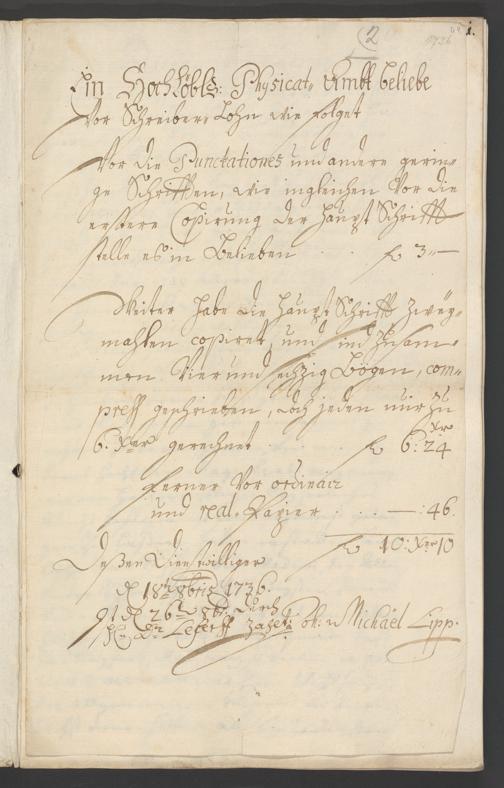 2
1.
1736
Ein Hochlöbl: Physicat-Ambt beliebe
Vor Schreiber-Lohn wie folget
Vor die Punctationes und andere gerin-
ge Schrifften, wie ingleichen vor die
erstere Copirung der Haupt Schrifft
stelle es in Belieben . . . fl 3"—
Weiter habe die Haupt Schrifft zwey-
mahlen copiret, und sind zusam-
men Vier und sechzig Bögen, com-
press geschrieben, doch jeden nur zu
6. Xer gerechnet . . . fl 6:24
Xr
Ferner vor ordinair
und real-Papier . . . —:46.
fl 10: Xer 10
Deßen Dienstwilliger
d 18t 8bris 1736.
d 26t 8br: durch
Hn Dr Lefers zahlt: Joh: Michäel Lipp.